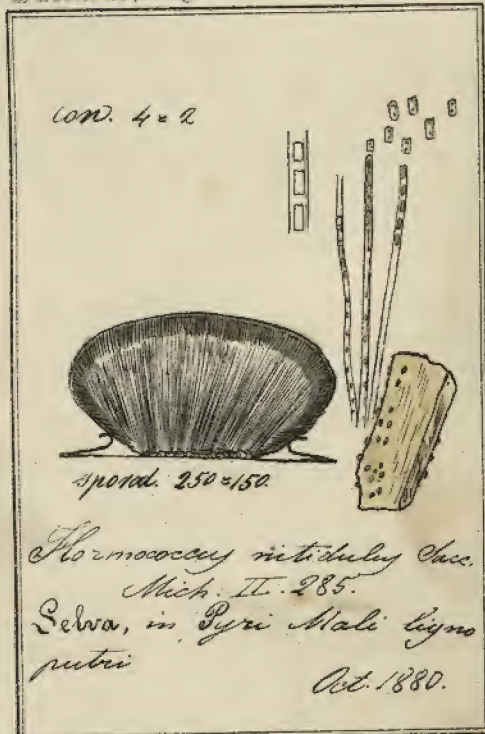 con. 4 = 2
sporod. 250 = 150.
Hormococcus nitidulus Sacc.
Mich. II. 285.
Selva, in Pyri Mali ligno
putri
Oct. 1880.